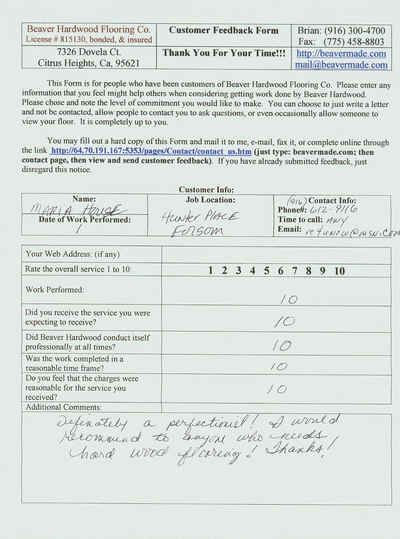 Beaver Hardwood Flooring Co.
License # 815130, bonded, & insured
Customer Feedback Form
Brian: (916) 300-4700
Fax: (775) 458-8803
7326 Dovela Ct.
Citrus Heights, Ca, 95621
Thank You For Your Time!!!
http://beavermade.com
mail@beavermade.com
This Form is for people who have been customers of Beaver Hardwood Flooring Co. Please enter any
information that you feel might help others when considering getting work done by Beaver Hardwood.
Please chose and note the level of commitment you would like to make. You can choose to just write a letter
and not be contacted, allow people to contact you to ask questions, or even occasionally allow someone to
view your floor. It is completely up to you.
You may fill out a hard copy of this Form and mail it to me, e-mail, fax it, or complete online through
the link http://64.70.191.167:5353/pages/Contact/contact_us.htm (just type: beavermade.com; then
contact page, then view and send customer feedback). If you have already submitted feedback, just
disregard this notice.
Customer Info:
Name:
MARIA HOUSE
Date of Work Performed:
Job Location:
Hunter Place
Folsom
(916) Contact Info:
Phone#: 612-9116
Time to call: ANY
Email:
Your Web Address: (if any)
Rate the overall service 1 to 10:
1 2 3 4 5 6 7 8 9 10
Work Performed:
10
Did you receive the service you were
expecting to receive?
10
Did Beaver Hardwood conduct itself
professionally at all times?
10
Was the work completed in a
reasonable time frame?
10
Do you feel that the charges were
reasonable for the service you
received?
10
Additional Comments:
Definately a perfectionist! I would
recommend to anyone who needs
hard wood flooring! Thanks!